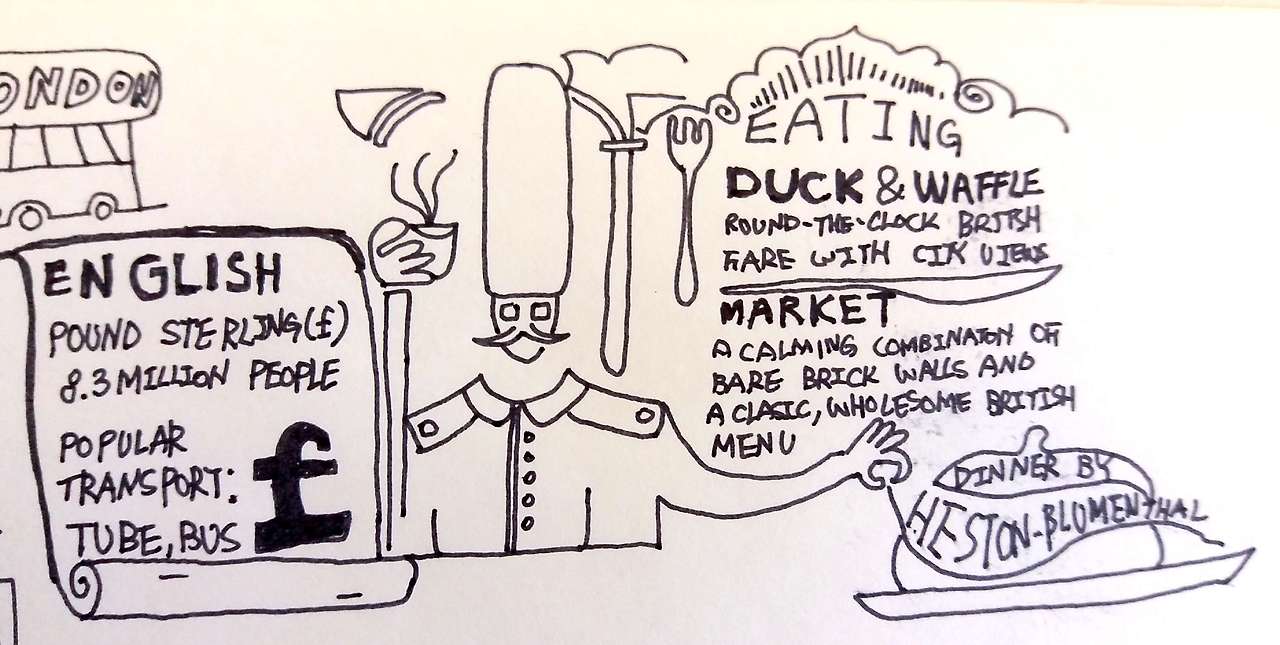 ONDON
ENGLISH
POUND STERLING(£)
8.3 MILLION PEOPLE
POPULAR
TRANSPORT:
TUBE, BUS
£
EATING
DUCK & WAFFLE
ROUND-THE-CLOCK BRITISH
FARE WITH CITY VIEWS
MARKET
A CALMING COMBINATON OF
BARE BRICK WALLS AND
A CLASIC, WHOLESOME BRITISH
MENU
DINNER BY
HESTON-BLUMENTHAL